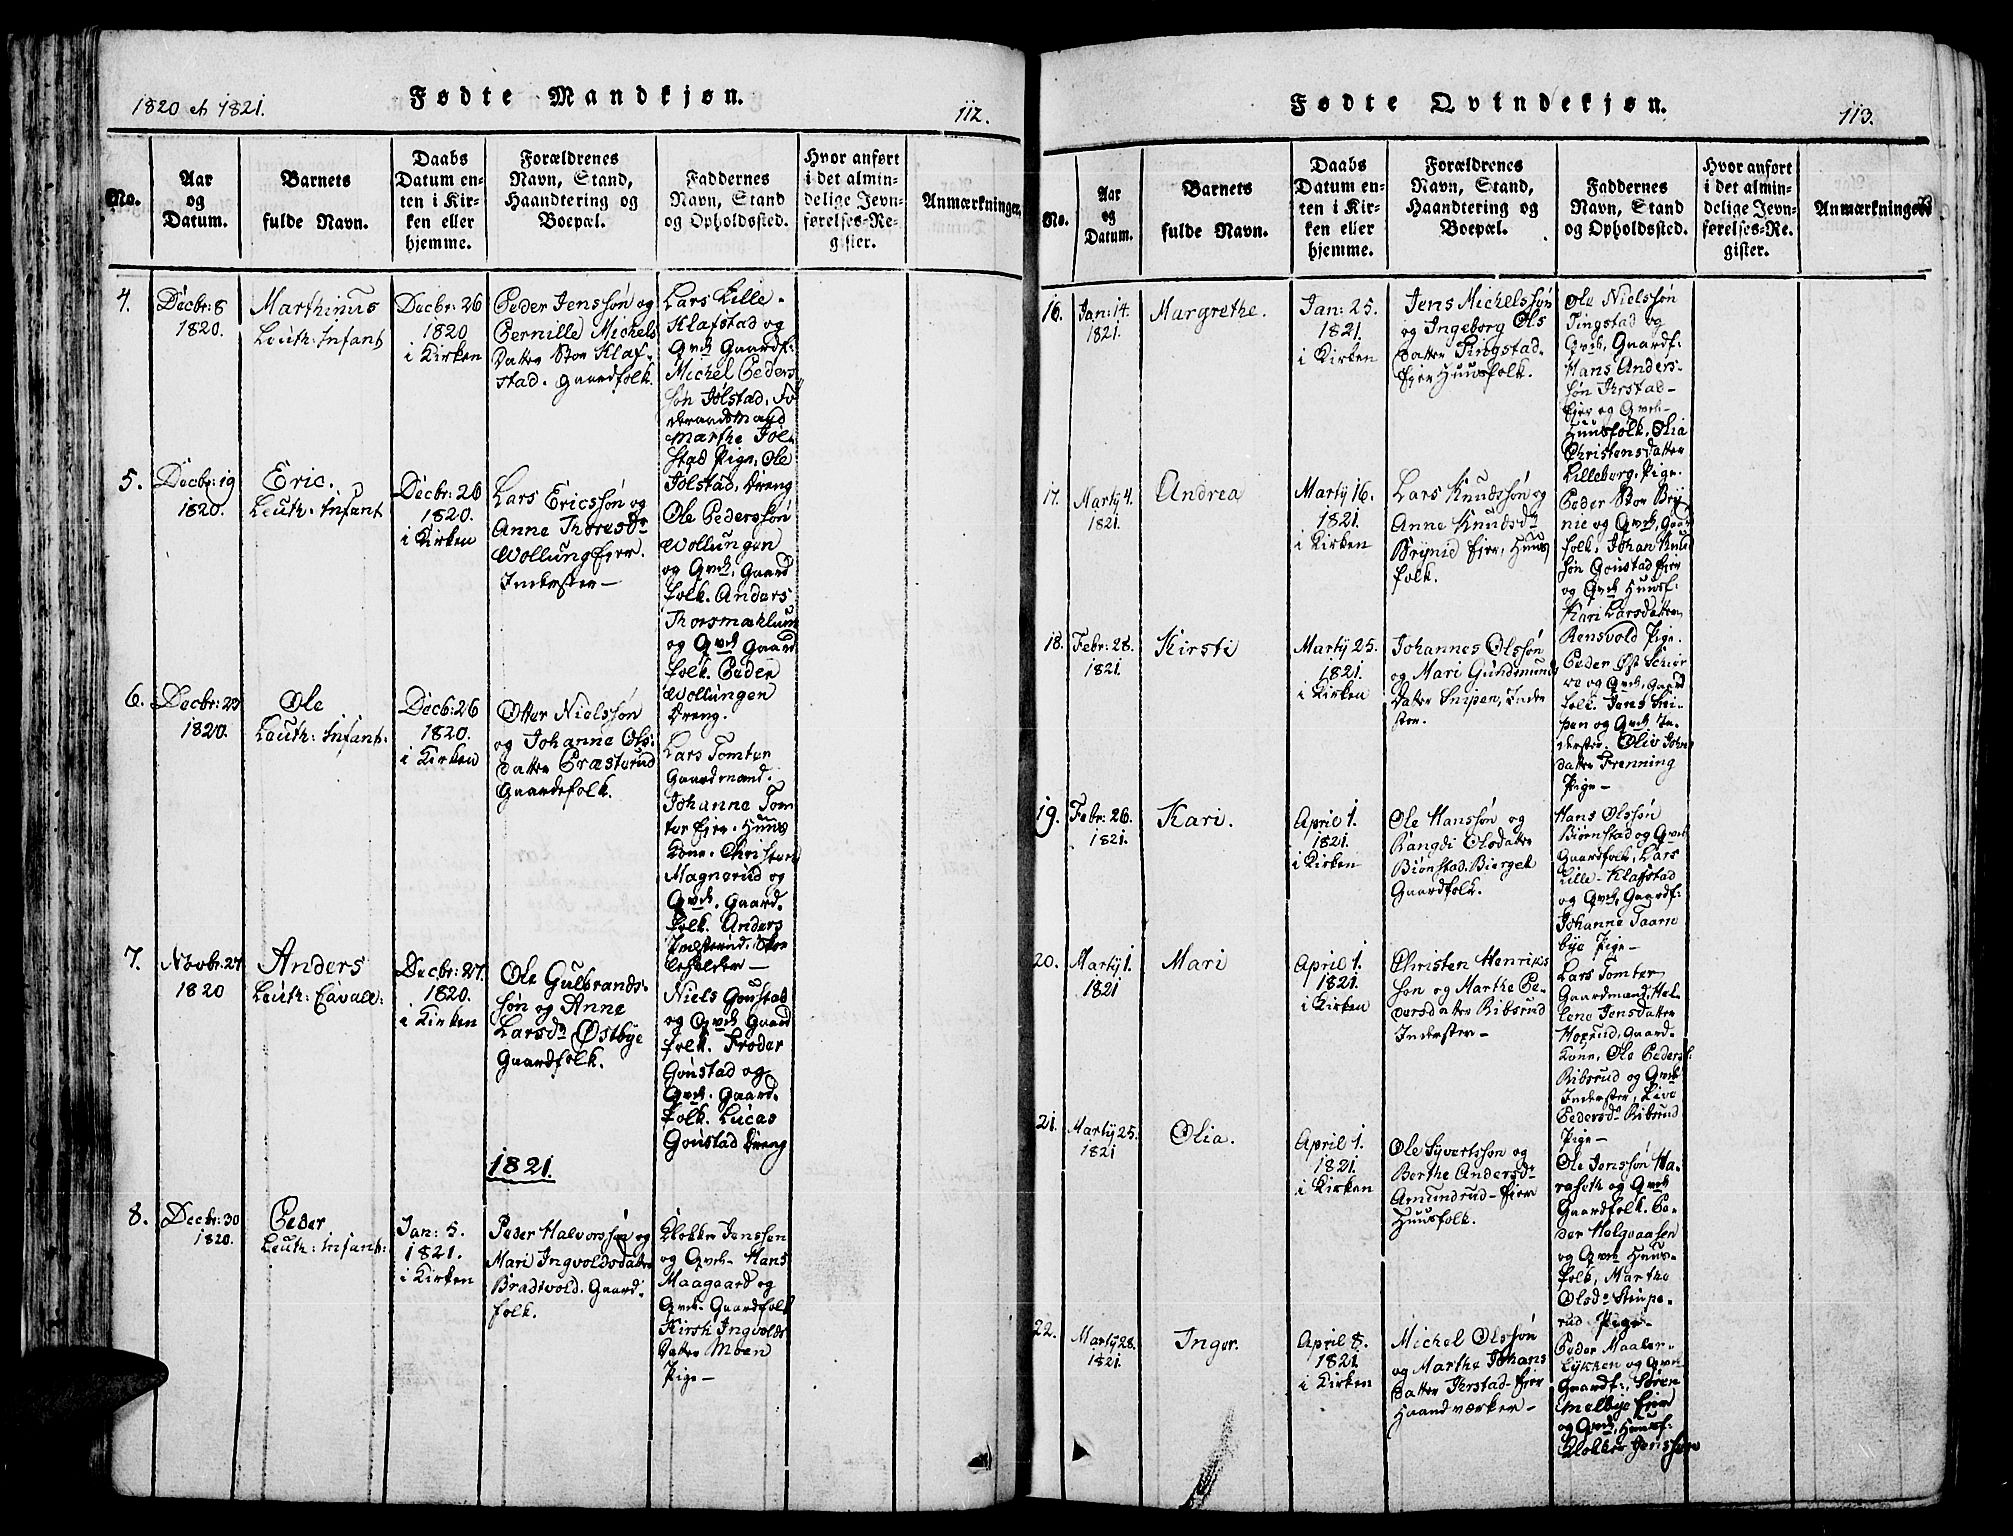 1820 et 1821.
Fødte Mandkjøn.
112.
No.
Aar
og
Datum.
Barnets
fulde Navn.
Daabs
Datum en-
ten i Kir-
ken eller
hjemme.
Forældrenes
Navn, Stand,
Haandtering og
Boepæl.
Faddernes
Navn, Stand
og Opholdssted.
Hvor anført
i det almin-
delige Jevn-
førelses-Re-
gister.
Anmærkninger.
4.
Decbr: 8
1820.
Marthinus
Leuth: Infant
Decbr: 26
1820
i Kirken
Peder Jenssøn og
Pernille Michels
Datter Stor Klaf-
stad. Gaardfolk.
Lars Lille-
Klafstad og
Qvd: Gaardf:
Michel Peders
søn Jølstad, Fø
deraadsmand
Marthe Jøl-
stad Pige, Ole
Jølstad, Dreng
5.
Decbr: 19
1820.
Eric.
Leuth: Infant
Decbr: 26
1820.
i Kirken
Lars Ericssøn og
Anne Thoresd:
Wollung Ejer.
Inderster-
Ole Pederssøn
Wollungen
og Qvd, Gaard
folk. Anders
Thorsmæhlum
og Qvd Gaard
folk. Peder
Wollungen
Dreng.
6.
Decbr: 23
1820.
Ole
Leuth: Infant:
Decb: 26
1820.
i Kirken
Otter Nielssøn
og Johanne Ols:
datter Præsterud
Gaardefolk.
Lars Tomter
Gaardmand.
Johanne Tom
ter Ejer. Huus
Kone. Christen
Magnerud og
Qvd. Gaard-
folk. Anders
Præsterud. Skoe
leholder-
7.
Novbr: 27
1820
Anders
Leuth: Cavall:
Decbr: 27.
1820.
i Kirken
Ole Gulbrands-
søn og Anne
Larsd: Østbye
Gaardfolk.
Niels Gonstad
og Qvd Gaard
folk. Froder
Gonstad og
Qvd. Gaard-
folk. Lucas
Gonstad Dreng
1821.
8.
Decbr: 30
1820.
Peder
Leuth: Infant:
Jan: 5.
1821.
i Kirken
Peder Halvorssøn og
Mari Ingvoldsdatter
Bradvold. Gaard-
folk.
Klokker Jenssen
og Qvd- Hans
Maagaard og
Qvd- Gaardfolk
Kirsti Ingvolds
Datter Moen
Pige-
Fødte Qvindekjøn.
113.
No.
Aar
og
Datum.
Barnets
fulde Navn.
Daabs
Datum en-
ten i Kir-
ken eller
hjemme.
Forældrenes
Navn, Stand,
Haandtering og
Boepæl.
Faddernes
Navn, Stand
og Opholdssted.
Hvor anført
i det almin-
delige Jevn-
førelses-Re-
gister.
Anmærkninger
16.
Jan: 14.
1821.
Margrethe.
Jan: 25.
1821.
i Kirken
Jens Michelssøn
og Ingeborg Ols
Datter Pingstad-
Ejer Huusfolk.
Ole Nielssøn
Pingstad og
Qvd, Gaardf:
Hans Anders-
søn Ihrstad-
Ejer og Qvd-
Huusfolk, Olia
Christensdatter
Lilleborg, Pige.
17.
Martÿ 4.
1821.
Andrea
Martÿ 16.
1821.
i Kirken
Lars Knudssøn og
Anne Knudsd:
Brÿnid Ejer, Huus
folk.
Peder Stor Brÿ
nie og Qvd, Gaard
folk, Johan Knud
søn Gonstad Ejer
og Qvd Huusf:
Kari Larsdatter
Rensvold Pige.
18.
Febr: 28.
1821.
Kirsti
Martÿ 25.
1821.
i Kirken
Johannes Olssøn
og Mari Gundmunds
Datter Snipen, Inder
ster.
Peder Øst Schiør
re og Qvd, Gaard
folk. Jens Sni-
pen og Qvd In-
derster. Oliv Johns
datter Frenning
Pige-
19.
Febr: 26.
1821.
Kari.
April 1.
1821.
i Kirken
Ole Hanssøn og
Rangdi Olsdatter
Biønstad. Bierget
Gaardfolk.
Hans Olssøn
Biørnstad og Qvd
Gaardfolk, Lars
Lille-Klafstad
og Qvd, Gaardf:
Johanne Taarne
bye Pige-
20.
Martÿ 1.
1821
Mari
April 1.
1821.
i Kirken
Christen Henrics
søn og Marthe Pe-
dersdatter Ribsrud
Inderster-
Lars Tomter
Gaardmand, Hel-
lene Jensdatter
Hoxrud, Gaard-
Kone, Ole Pederss:
Ribsrud og Qvd
Inderster, Live
Pedersd: Ribsrud
Pige-
21.
Martÿ 25.
1821
Olia.
April 1.
1821.
i Kirken
Ole Syvertssøn og
Berthe Andersd:
Amundrud-Ejer
Huusfolk.
Ole Jonssøn Ha-
raseth og Qvd
Gaardfolk. Pe-
der Helgeaasen
og Qvd Huus-
folk, Marthe
Olsd: Stupe-
rud Pige-
22.
Martÿ 28.
1821.
Inger.
April 8.
1821
i Kirken
Michel Olssøn
og Marthe Johans
datter Ierstad-Ejer
Haandværker-
Peder Maaler-
Lÿkken og Qvd
Gaardf:, Søren
Melbye Ejer
og Qvd, Huusf:
Klokker Jenssen